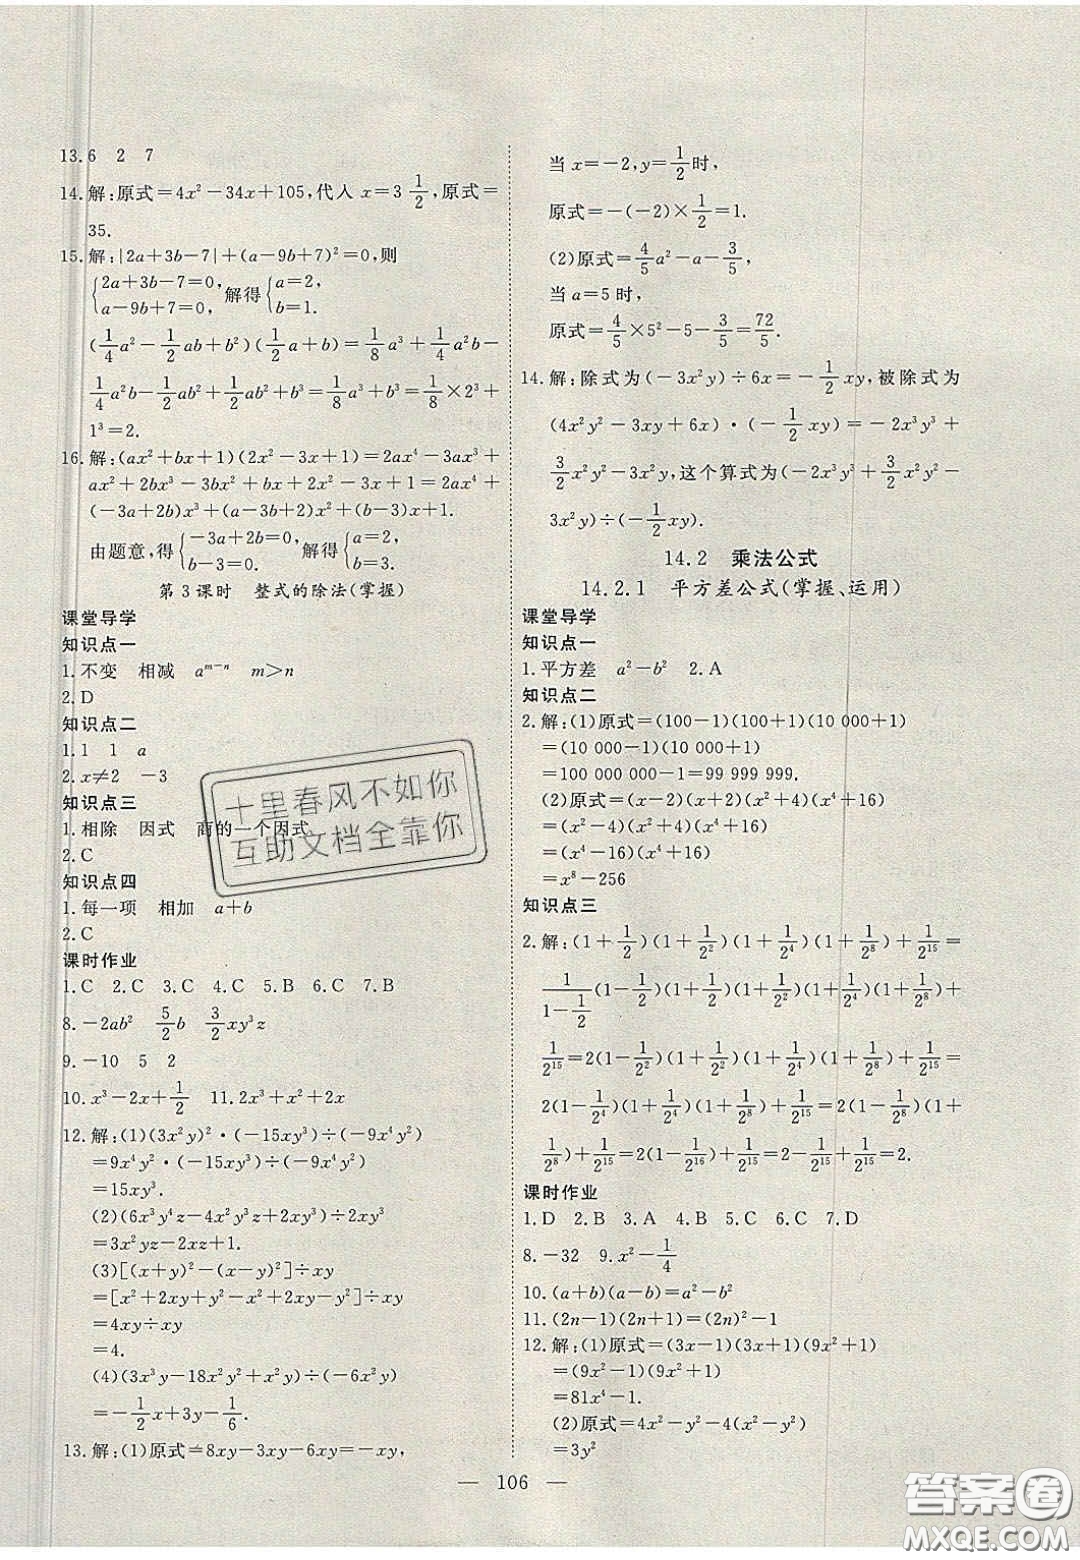 13.6　2　7
14.解:原式=4x²-34x+105,代入 x=3 1/2,原式=
35.
15.解:|2a+3b-7|+(a-9b+7)²=0,则
{2a+3b-7=0, a-9b+7=0, 解得{a=2, b=1.
(1/4a²-1/2ab+b²)(1/2a+b)=1/8a³+1/4a²b-
1/4a²b-1/2ab²+1/2ab²+b³=1/8a³+b³=1/8×2³+
1³=2.
16.解:(ax²+bx+1)(2x²-3x+1)=2ax⁴-3ax³+
ax²+2bx³-3bx²+bx+2x²-3x+1=2ax⁴+
(-3a+2b)x³+(a-3b+2)x²+(b-3)x+1.
由题意,得{-3a+2b=0, b-3=0, 解得{a=2, b=3.
第3课时　整式的除法(掌握)
课堂导学
知识点一
1.不变　相减　aᵐ⁻ⁿ　m>n
2.D
知识点二
1.1　1　a
2.x≠2　-3
知识点三
1.相除　因式　商的一个因式
2.C
知识点四
1.每一项　相加　a+b
2.C
课时作业
1.C　2.C　3.C　4.C　5.B　6.C　7.B
8.-2ab²　5/2b　3/2xy³z
9.-10　5　2
10.x³-2x+1/2　11.2x³+x²+2x
12.解:(1)(3x²y)²·(-15xy³)÷(-9x⁴y²)
=9x⁴y²·(-15xy³)÷(-9x⁴y²)
=15xy³.
(2)(6x³y⁴z-4x²y³z+2xy³)÷2xy³
=3x²yz-2xz+1.
(3)[(x+y)²-(x-y)²]÷xy
=[x²+2xy+y²-x²+2xy-y²]÷xy
=4xy÷xy
=4.
(4)(3x³y-18x²y²+x²y)÷(-6x²y)
=-1/2x+3y-1/6.
13.解:(1)原式=8xy-3xy-6xy=-xy,
当 x=-2,y=1/2时,
原式=-(-2)×1/2=1.
(2)原式=4/5a²-a-3/5,
当 a=5时,
原式=4/5×5²-5-3/5=72/5.
14.解:除式为(-3x²y)÷6x=-1/2xy,被除式为
(4x²y²-3xy+6x)·(-1/2xy)=-2x³y³+
3/2x²y²-3x²y,这个算式为(-2x³y³+3/2x²y²-
3x²y)÷(-1/2xy).
14.2　乘法公式
14.2.1　平方差公式(掌握、运用)
课堂导学
知识点一
1.平方差　a²-b²　2.A
知识点二
2.解:(1)原式=(100-1)(100+1)(10 000+1)
=(10 000-1)(10 000+1)
=100 000 000-1=99 999 999.
(2)原式=(x-2)(x+2)(x²+4)(x⁴+16)
=(x²-4)(x²+4)(x⁴+16)
=(x⁴-16)(x⁴+16)
=x⁸-256
知识点三
2.解:(1+1/2)(1+1/2²)(1+1/2⁴)(1+1/2⁸)+1/2¹⁵=
1/(1-1/2)(1-1/2)(1+1/2)(1+1/2²)(1+1/2⁴)(1+1/2⁸)+
1/2¹⁵=2(1-1/2²)(1+1/2²)(1+1/2⁴)(1+1/2⁸)+1/2¹⁵=
2(1-1/2⁴)(1+1/2⁴)(1+1/2⁸)+1/2¹⁵=2(1-1/2⁸)(1+
1/2⁸)+1/2¹⁵=2(1-1/2¹⁶)+1/2¹⁵=2-1/2¹⁵+1/2¹⁵=2.
课时作业
1.D　2.B　3.A　4.B　5.C　6.C　7.D
8.-32　9.x²-1/4
10.(a+b)(a-b)=a²-b²
11.(2n-1)(2n+1)=(2n)²-1
12.解:(1)原式=(3x-1)(3x+1)(9x²+1)
=(9x²-1)(9x²+1)
=81x⁴-1.
(2)原式=4x²-y²-(4x²-4y²)
=3y²
— 106 —
十里春风不如你
互助文档全靠你
答案圈
MXQE.COM